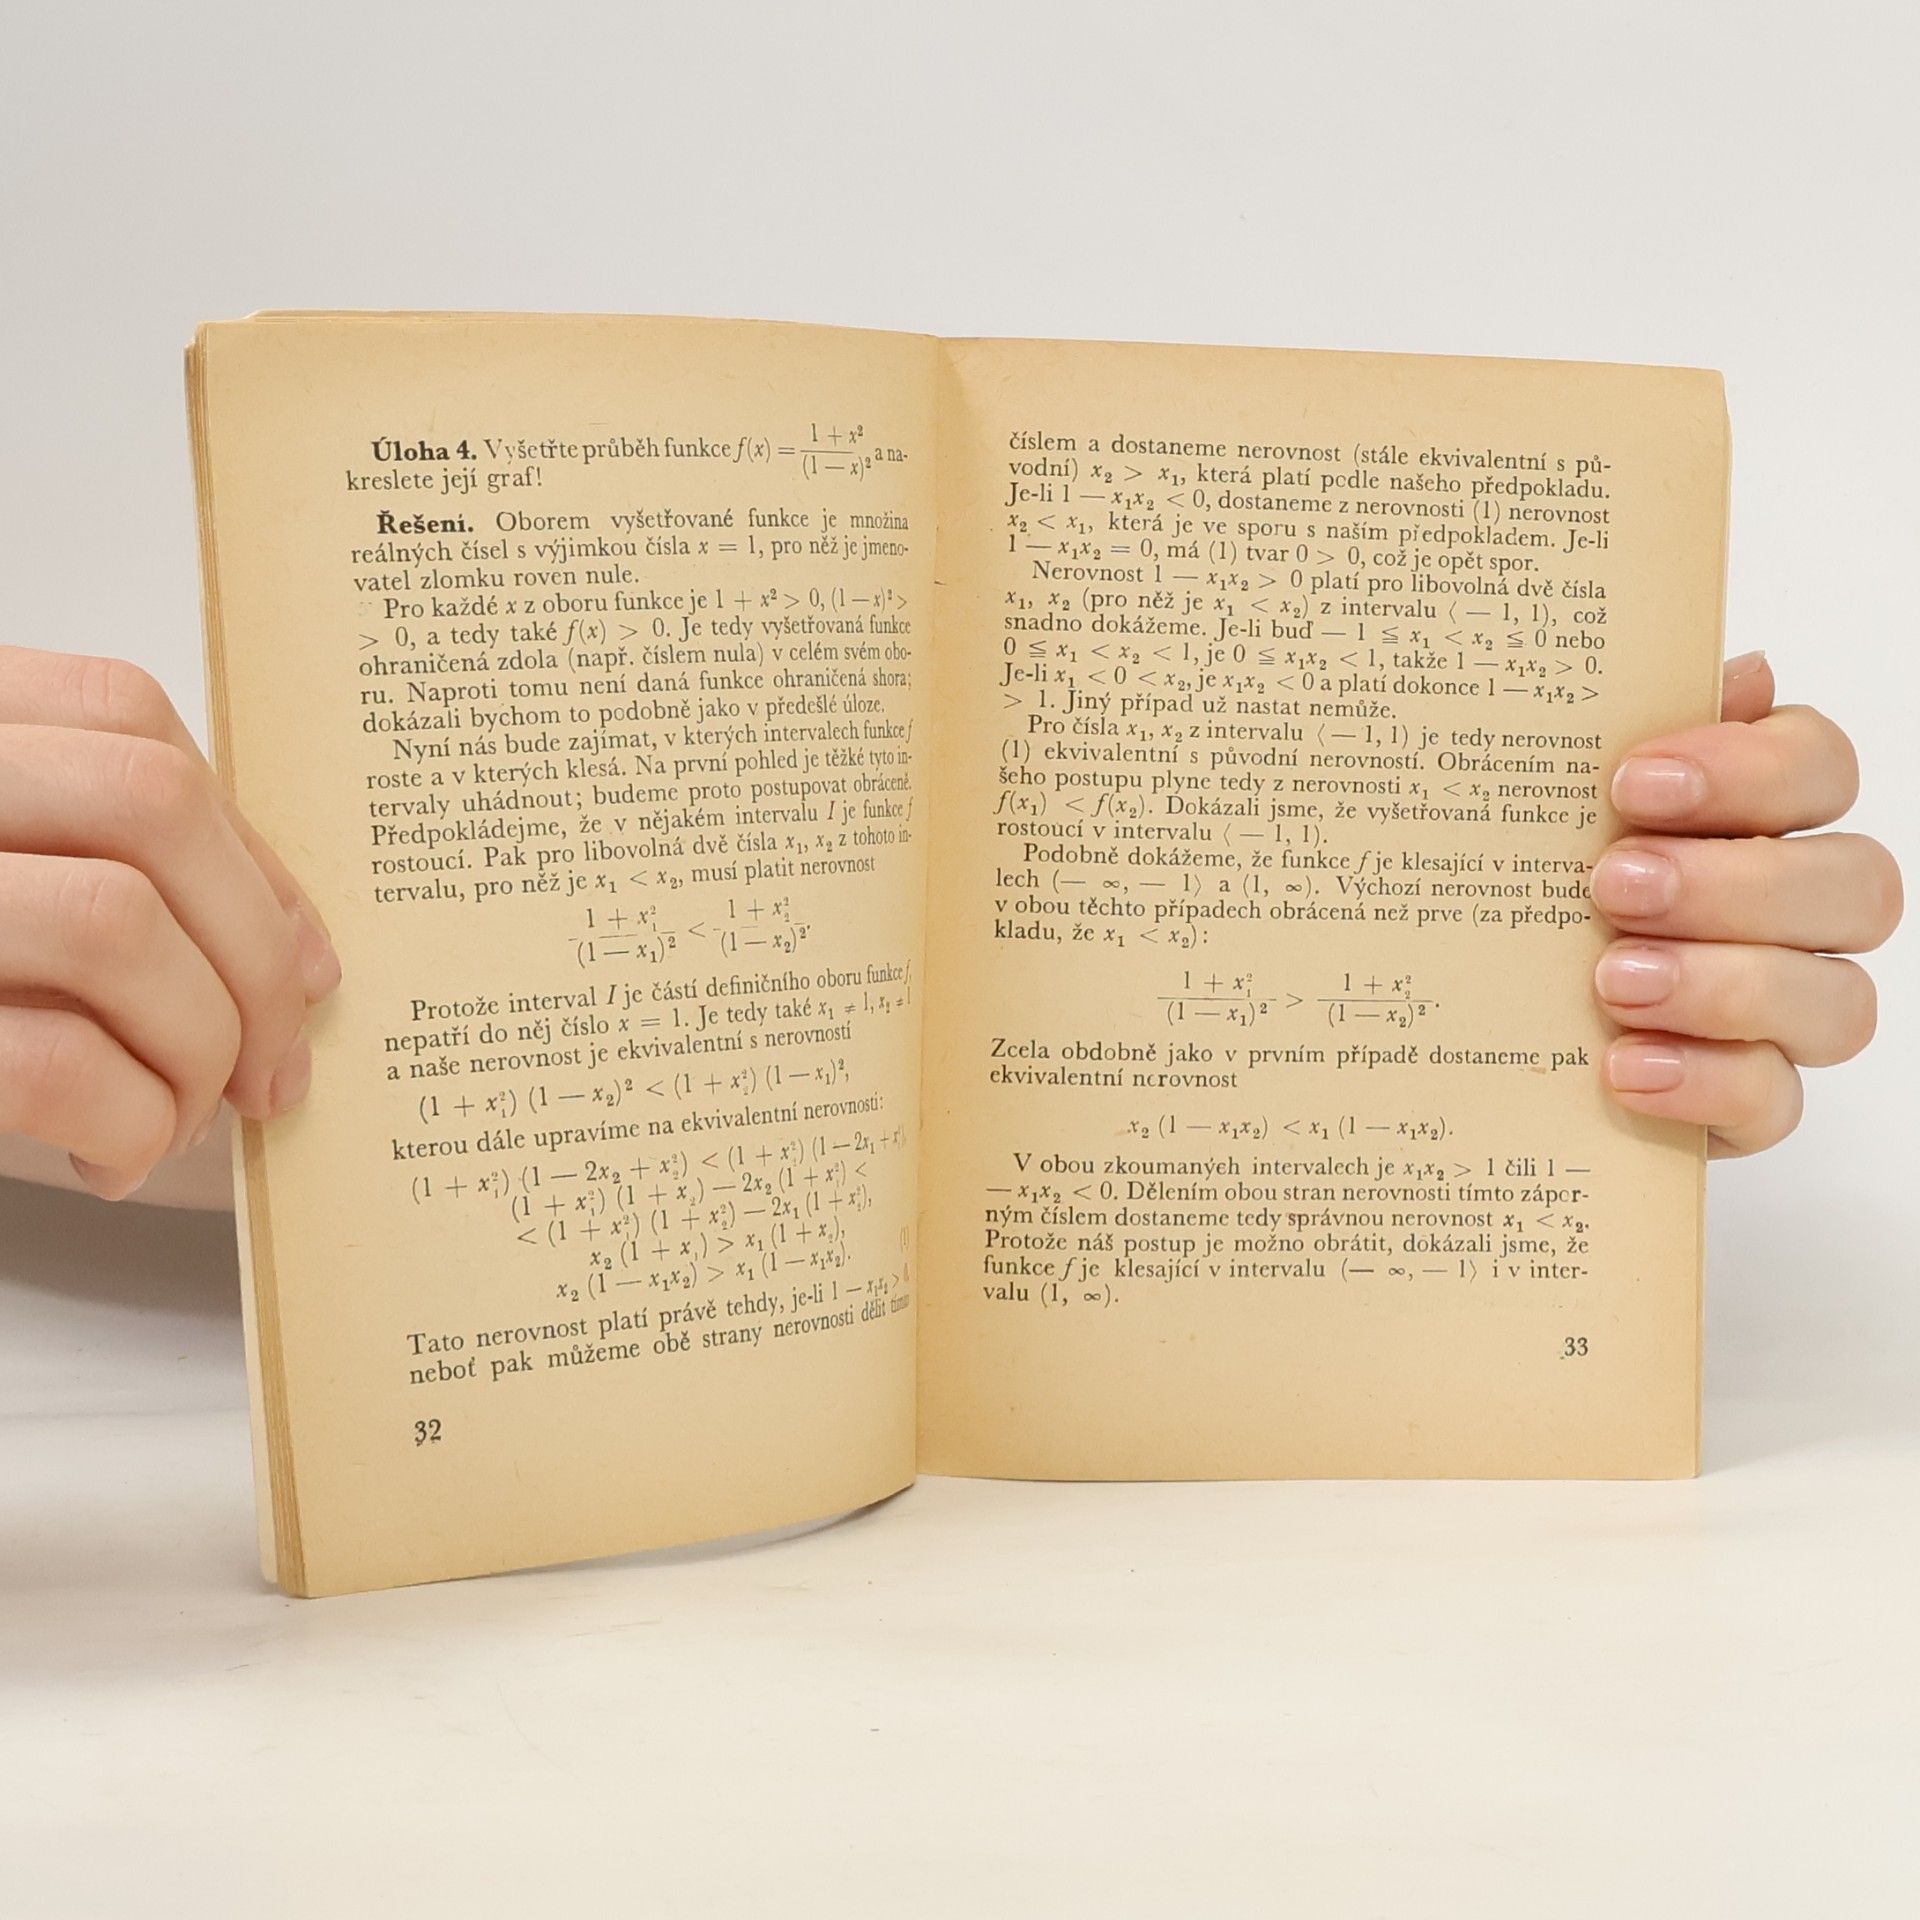 Úloha 4. Vyšetřte průběh funkce f(x) = (1 + x²)/(1 — x)² a na-
kreslete její graf!
Řešení. Oborem vyšetřované funkce je množina
reálných čísel s výjimkou čísla x = 1, pro něž je jmeno-
vatel zlomku roven nule.
Pro každé x z oboru funkce je 1 + x² > 0, (1 — x)² >
> 0, a tedy také f(x) > 0. Je tedy vyšetřovaná funkce
ohraničená zdola (např. číslem nula) v celém svém obo-
ru. Naproti tomu není daná funkce ohraničená shora;
dokázali bychom to podobně jako v předešlé úloze.
Nyní nás bude zajímat, v kterých intervalech funkce f
roste a v kterých klesá. Na první pohled je těžké tyto in-
tervaly uhádnout; budeme proto postupovat obráceně.
Předpokládejme, že v nějakém intervalu I je funkce f
rostoucí. Pak pro libovolná dvě čísla x₁, x₂ z tohoto in-
tervalu, pro něž je x₁ < x₂, musí platit nerovnost
(1 + x₁²)/(1 — x₁)² < (1 + x₂²)/(1 — x₂)².
Protože interval I je částí definičního oboru funkce f,
nepatří do něj číslo x = 1. Je tedy také x₁ ≠ 1, x₂ ≠ 1
a naše nerovnost je ekvivalentní s nerovností
(1 + x₁²) (1 — x₂)² < (1 + x₂²) (1 — x₁)²,
kterou dále upravíme na ekvivalentní nerovnosti:
(1 + x₁²) (1 — 2x₂ + x₂²) < (1 + x₂²) (1 — 2x₁ + x₁²),
(1 + x₁²) (1 + x₂²) — 2x₂ (1 + x₁²) <
< (1 + x₁²) (1 + x₂²) — 2x₁ (1 + x₂²),
x₂ (1 + x₁²) > x₁ (1 + x₂²),
x₂ (1 — x₁x₂) > x₁ (1 — x₁x₂). (1)
Tato nerovnost platí právě tehdy, je-li 1 — x₁x₂ > 0,
neboť pak můžeme obě strany nerovnosti dělit tímto
32
číslem a dostaneme nerovnost (stále ekvivalentní s pů-
vodní) x₂ > x₁, která platí podle našeho předpokladu.
Je-li 1 — x₁x₂ < 0, dostaneme z nerovnosti (1) nerovnost
x₂ < x₁, která je ve sporu s naším předpokladem. Je-li
1 — x₁x₂ = 0, má (1) tvar 0 > 0, což je opět spor.
Nerovnost 1 — x₁x₂ > 0 platí pro libovolná dvě čísla
x₁, x₂ (pro něž je x₁ < x₂) z intervalu ⟨ — 1, 1), což
snadno dokážeme. Je-li buď — 1 ≦ x₁ < x₂ ≦ 0 nebo
0 ≦ x₁ < x₂ < 1, je 0 ≦ x₁x₂ < 1, takže 1 — x₁x₂ > 0.
Je-li x₁ < 0 < x₂, je x₁x₂ < 0 a platí dokonce 1 — x₁x₂ >
> 1. Jiný případ už nastat nemůže.
Pro čísla x₁, x₂ z intervalu ⟨ — 1, 1) je tedy nerovnost
(1) ekvivalentní s původní nerovností. Obrácením na-
šeho postupu plyne tedy z nerovnosti x₁ < x₂ nerovnost
f(x₁) < f(x₂). Dokázali jsme, že vyšetřovaná funkce je
rostoucí v intervalu ⟨ — 1, 1).
Podobně dokážeme, že funkce f je klesající v interva-
lech (— ∞, — 1⟩ a (1, ∞). Výchozí nerovnost bude
v obou těchto případech obrácená než prve (za předpo-
kladu, že x₁ < x₂):
(1 + x₁²)/(1 — x₁)² > (1 + x₂²)/(1 — x₂)².
Zcela obdobně jako v prvním případě dostaneme pak
ekvivalentní nerovnost
x₂ (1 — x₁x₂) < x₁ (1 — x₁x₂).
V obou zkoumaných intervalech je x₁x₂ > 1 čili 1 —
— x₁x₂ < 0. Dělením obou stran nerovnosti tímto zápor-
ným číslem dostaneme tedy správnou nerovnost x₁ < x₂.
Protože náš postup je možno obrátit, dokázali jsme, že
funkce f je klesající v intervalu (— ∞, — 1⟩ i v inter-
valu (1, ∞).
33